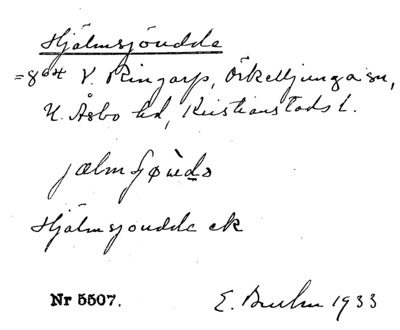 Hjälmsjöudde
= gd V. Ringarp, Örkelljunga sn,
N. Åsbo hd, Kristianstads l.
jælmʃøùdə
Hjälmsjöudde ek
Nr 5507.
E. Bruhn 1933